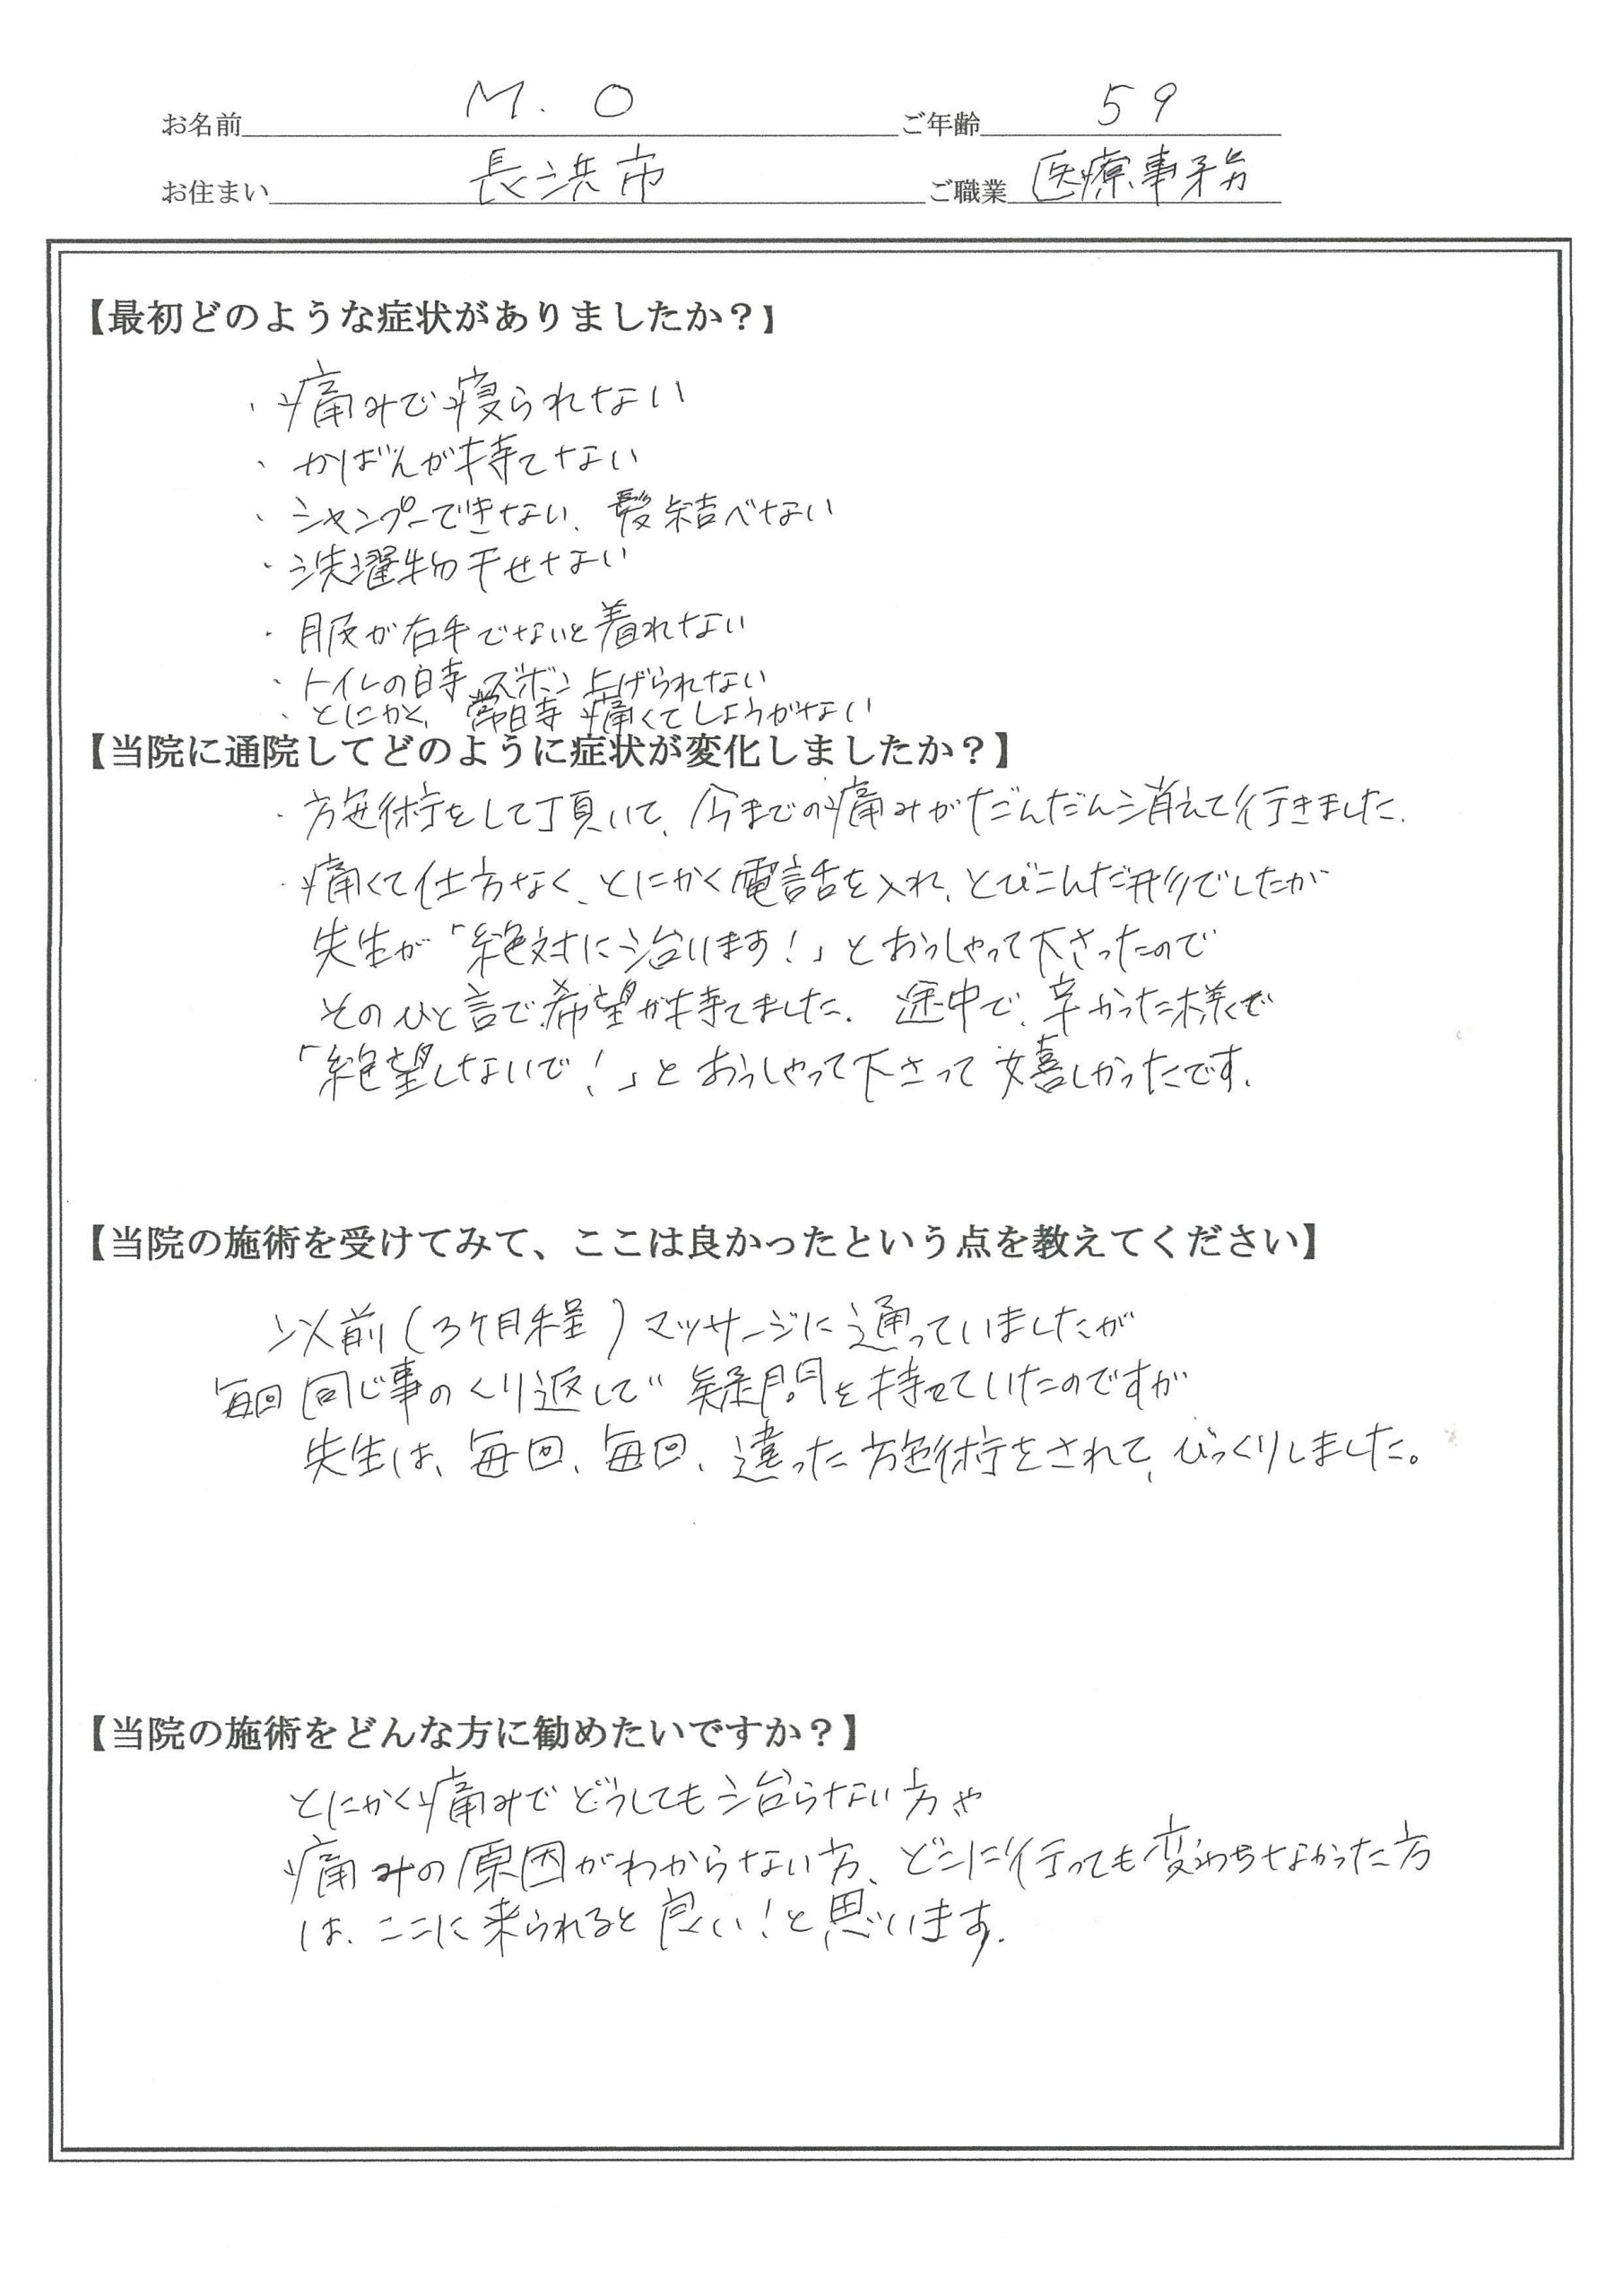 お名前 M. O ご年齢 59
お住まい 長浜市 ご職業 医療事務
【最初どのような症状がありましたか？】
・痛みで寝られない
・かばんが持てない
・シャンプーできない、髪結べない
・洗濯物干せない
・服が右手でないと着れない
・トイレの時ズボン上げられない
・とにかく、常時痛くてしようがない
【当院に通院してどのように症状が変化しましたか？】
・施術をして頂いて、今までの痛みがだんだん消えて行きました.
・痛くて仕方なく、とにかく電話を入れ、とびこんだ形でしたが
先生が「絶対に治ります！」とおっしゃって下さったので
そのひと言で希望が持てました. 途中で、辛かった様で
「絶望しないで！」とおっしゃって下さって嬉しかったです.
【当院の施術を受けてみて、ここは良かったという点を教えてください】
以前(3ケ月程)マッサージに通っていましたが
毎回同じ事のくり返しで疑問を持っていたのですが
先生は、毎回、毎回、違った施術をされて、びっくりしました。
【当院の施術をどんな方に勧めたいですか？】
とにかく痛みでどうしても治らない方や
痛みの原因がわからない方、どこに行っても変わらなかった方
は、ここに来られると良い！と思います.